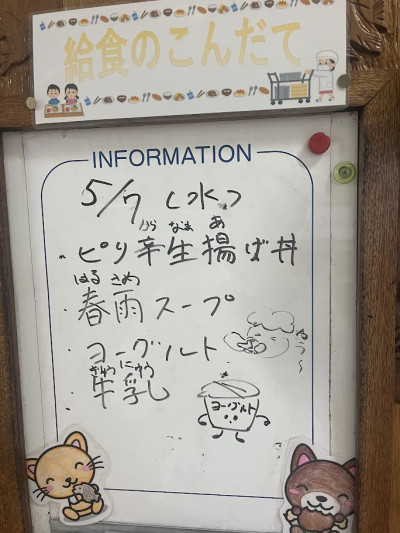 給食のこんだて
INFORMATION
5/7(水)
から なま あ
・ピリ辛生揚げ丼
はる さめ
・春雨スープ
・ヨーグルト
ぎゅう にゅう
・牛乳
ヨーグルト